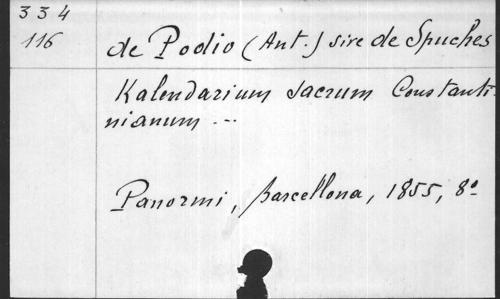 334
116
de Podio (Ant.) sire de Spuches
Kalendarium sacrum Constanti-
nianum ...
Panormi, Barcellona, 1855, 8º